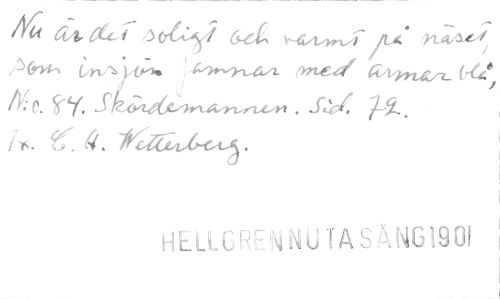 Nu är det soligt och varmt på näset,
som insjön famnar med armar blå,
N:o. 84. Skördemannen. Sid. 72.
Tx. C. A. Wetterberg.
HELLGREN NUTA SÅNG 1901